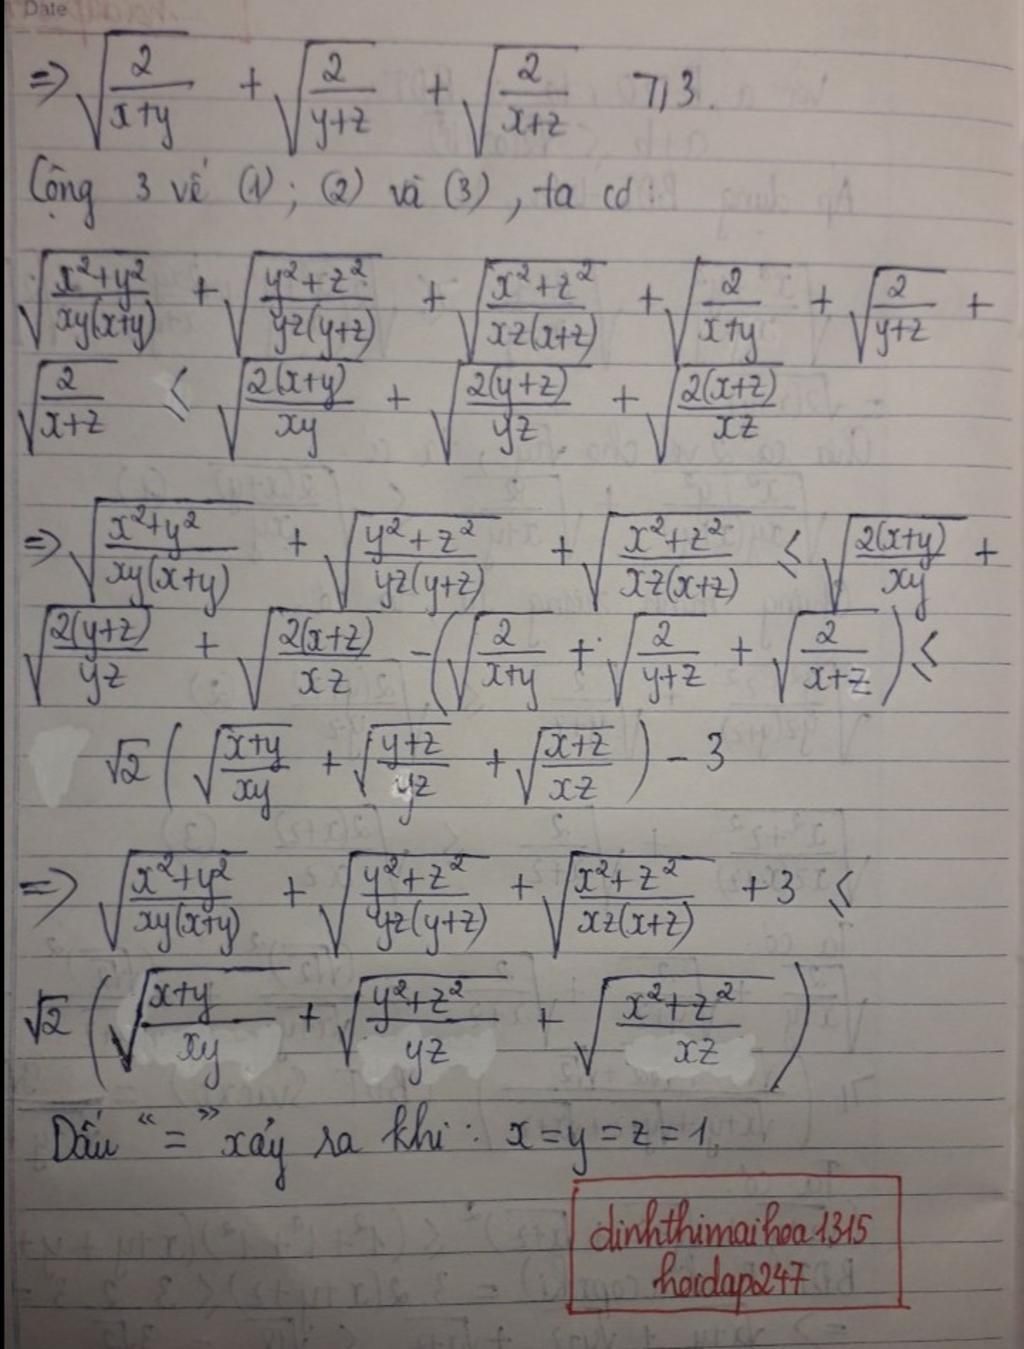 Date
=> √(2/(x+y)) + √(2/(y+z)) + √(2/(x+z)) ⩾ 3.
Cộng 3 vế (1); (2) và (3), ta có:
√((x²+y²)/(xy(x+y))) + √((y²+z²)/(yz(y+z))) + √((x²+z²)/(xz(x+z))) + √(2/(x+y)) + √(2/(y+z)) +
√(2/(x+z)) ⩽ √(2(x+y)/(xy)) + √(2(y+z)/(yz)) + √(2(x+z)/(xz))
=> √((x²+y²)/(xy(x+y))) + √((y²+z²)/(yz(y+z))) + √((x²+z²)/(xz(x+z))) ⩽ √(2(x+y)/(xy)) +
√(2(y+z)/(yz)) + √(2(x+z)/(xz)) - (√(2/(x+y)) + √(2/(y+z)) + √(2/(x+z))) ⩽
√2 (√((x+y)/(xy)) + √((y+z)/(yz)) + √((x+z)/(xz))) - 3
=> √((x²+y²)/(xy(x+y))) + √((y²+z²)/(yz(y+z))) + √((x²+z²)/(xz(x+z))) + 3 ⩽
√2 (√((x+y)/(xy)) + √((y²+z²)/(yz)) + √((x²+z²)/(xz)))
Dấu "=" xảy ra khi: x=y=z=1.
dinhthimaihoa1315
hoidap247